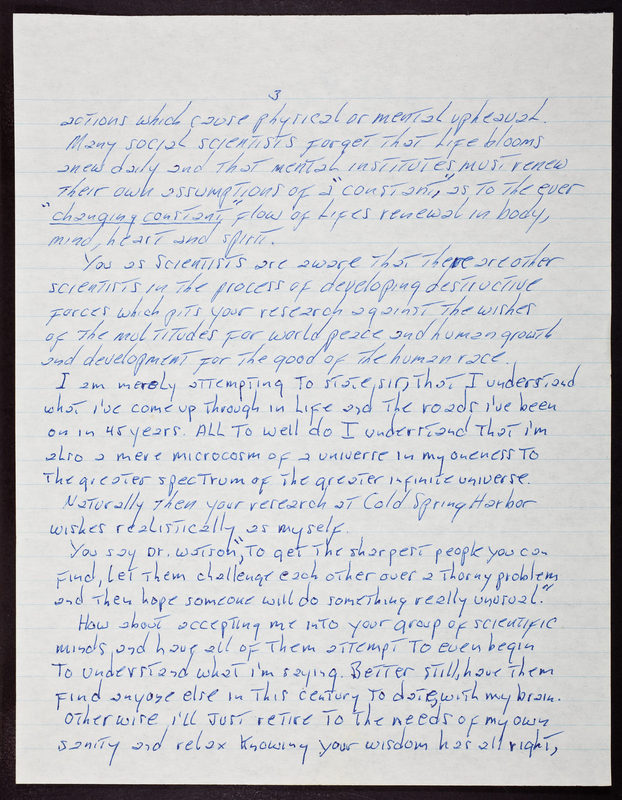 3
actions which cause physical or mental upheaval.
Many social scientists forget that life blooms
anew daily and that mental institutes must renew
their own assumptions of a "constant," as to the ever
"changing constant" flow of lifes renewal in body,
mind, heart and spirit.
You as scientists are aware that there are other
scientists in the process of developing destructive
forces which pits your research against the wishes
of the multitudes for world peace and human growth
and development for the good of the human race.
I am merely attempting to state, sir, that I understand
what i've come up through in life and the roads i've been
on in 45 years. All to well do I understand that i'm
also a mere microcosm of a universe in my oneness to
the greater spectrum of the greater infinite universe.
Naturally then your research at Cold Spring Harbor
wishes realistically as myself.
You say Dr. Watson, "to get the sharpest people you can
find, let them challenge each other over a thorny problem
and then hope someone will do something really unusual."
How about accepting me into your group of scientific
minds, and have all of them attempt to even begin
to understand what i'm saying. Better still, have them
find anyone else in this century to date, with my brain.
Otherwise i'll just retire to the needs of my own
sanity and relax knowing your wisdom has all right,